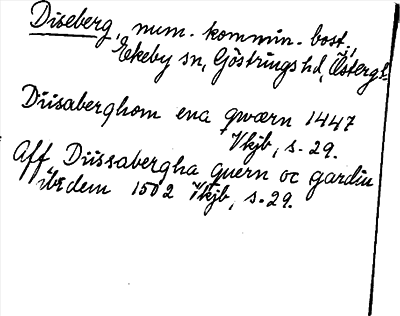 Diseberg, num. kommin. bost.,
Ekeby sn, Göstrings hd, Östergl.
Diisaberghom ena qwærn 1447
Vkjb, s. 29.
Aff Diissabergha quern oc gardin
ibidem 1502 Vkjb, s. 29.